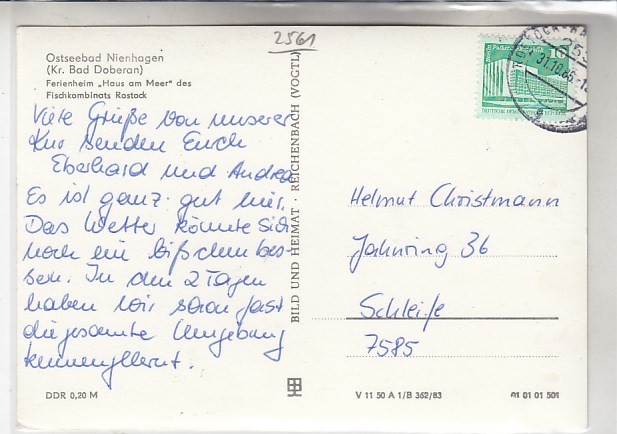 2561
Ostseebad Nienhagen
(Kr. Bad Doberan)
Ferienheim „Haus am Meer" des
Fischkombinats Rostock
Viele Grüße von unserer
Kur senden Euch
Eberhard und Andrea
Es ist ganz gut hier.
Das Wetter könnte sich
noch ein bißchen bes-
sern. In den 2 Tagen
haben wir schon fast
die gesamte Umgebung
kennengelernt.
BILD UND HEIMAT · REICHENBACH (VOGTL)
Helmut Christmann
Jahnring 36
Schleife
7585
DDR 0,20 M
V 11 50 A 1/B 362/83
01 01 01 501
10
31.10.86